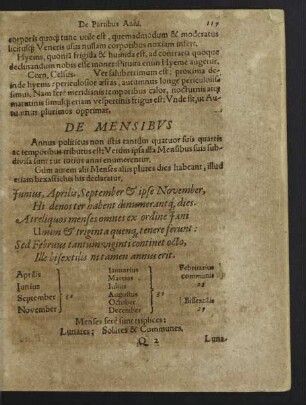 De Partibus Anni. 119
corporis quoq; tunc utile est, quemadmodum & moderatus
licitusq; Veneris usus nullam corporibus noxiam infert.
Hyems, quoniā frigida & humida est, ad contraria quoque
declinandum nobis esse monet
Corn. Celsus. Ver saluberrimum est: proxima de-
inde hyems: periculosior æstas, autumnus longe periculosis-
simus. Nam ferè meridianis temporibus calor, nocturnis atq;
matutinis simulq; etiam vespertinis frigus est: Unde fit, ut Au-
tumnus plurimos opprimat.
DE MENSIBVS
Annus politicus non istis tantùm quatuor suis quartis
ac temporibus distributus est: Verùm ipsis Mensibus suis sub-
divisus
Cùm autem alii Menses aliis plures dies habeant, illud
etiam hexastichis his declaratur,
Junius, Aprilis, September & ipse November,
Hi denos ter habent dinumerantq́, dies.
At reliquos menses omnes ex ordine Jani
Unum & triginta quemq, tenere ferunt:
Sed Februus tantum viginti continet octo,
Ille bisextilis ni tamen annus erit.
Aprilis
Iunius
September
November
30
Ianuarius
Martius
Iulius
Augustus
October
December
31
Februarius
communis
28
Bissextilis
29
Menses ferè sunt triplices:
Lunares; Solares & Communes.
Q 2 Luna-